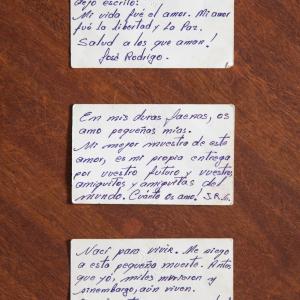 dejo escrito:
Mi vida fué el amor. Mi amor
fué la libertad y La Paz.
Salud a los que aman!
José Rodrigo.
En mis duras faenas, os
amo pequeñas mías.
Mi mejor muestra de este
amor, es mi propia entrega
por vuestro futuro y vuestros
amiguitos y amiguitas del
mundo. Cuánto os amo!
Nací para vivir. Me niego
a esta pequeña muerte. Antes
que yo, miles murieron y
sinembargo, aún viven.